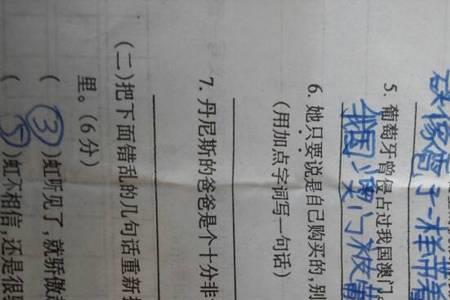 像雪子一样带着
5. 葡萄牙曾侵占过我国澳门
国澳门被葡
6. 她只要说是自己购买的,别
(用加点字词写一句话)
7. 丹尼斯的爸爸是个十分非
(二)把下面错乱的几句话重新
里。(6分)
(③)虹听见了,就骄傲
(⑤)虹不相信,还是很